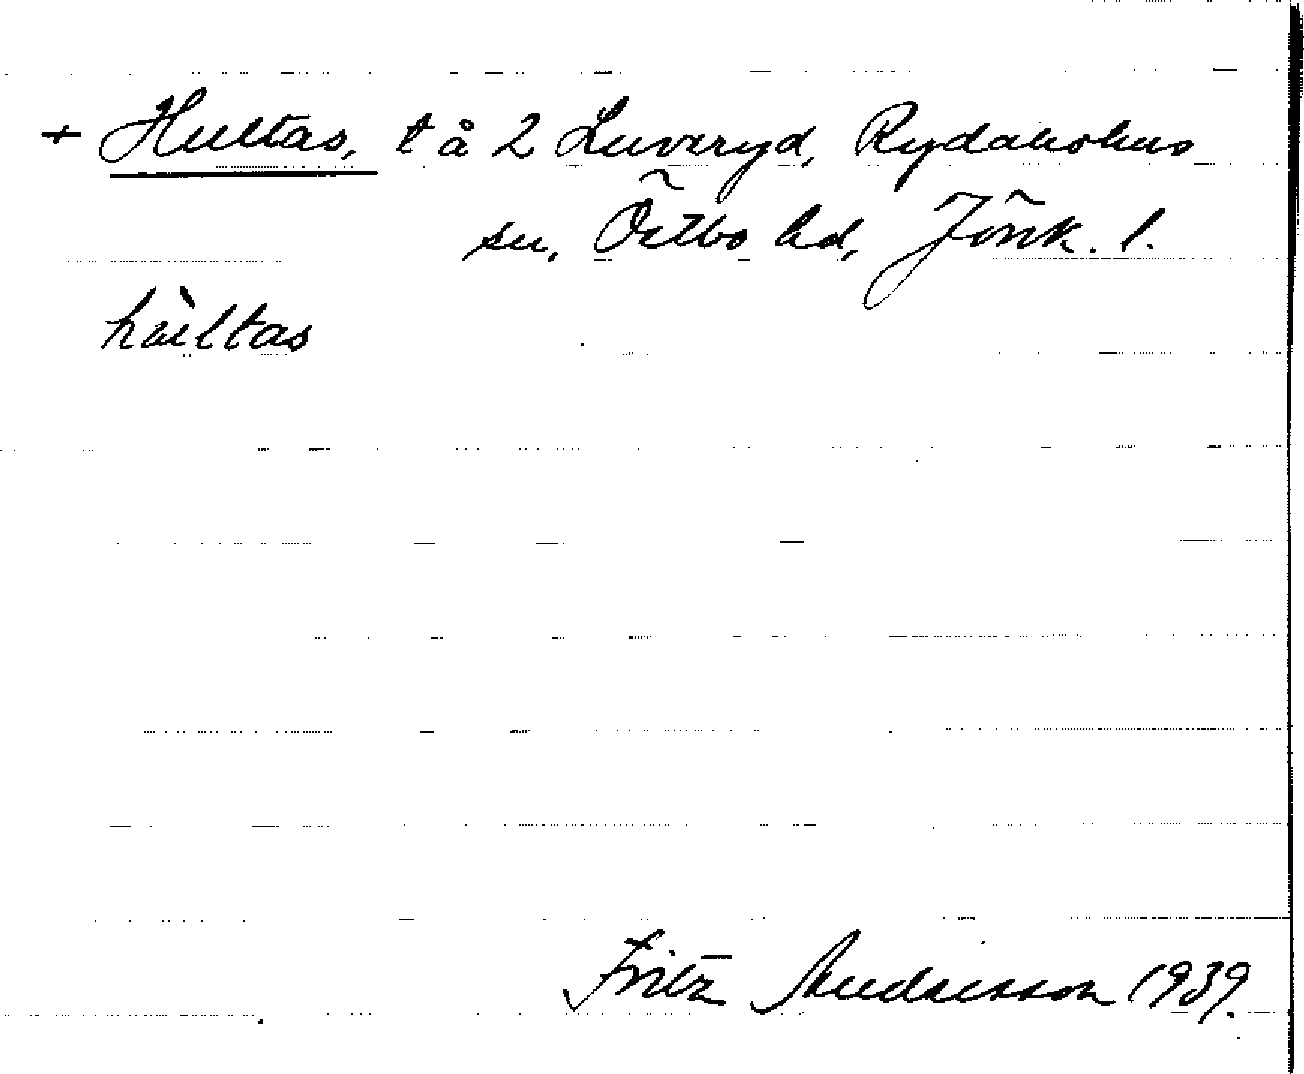 + Hultas, t å 2 Luveryd, Rydaholms
sn, Östbo hd, Jönk. l.
hùltas
Fritz Andersson 1939.